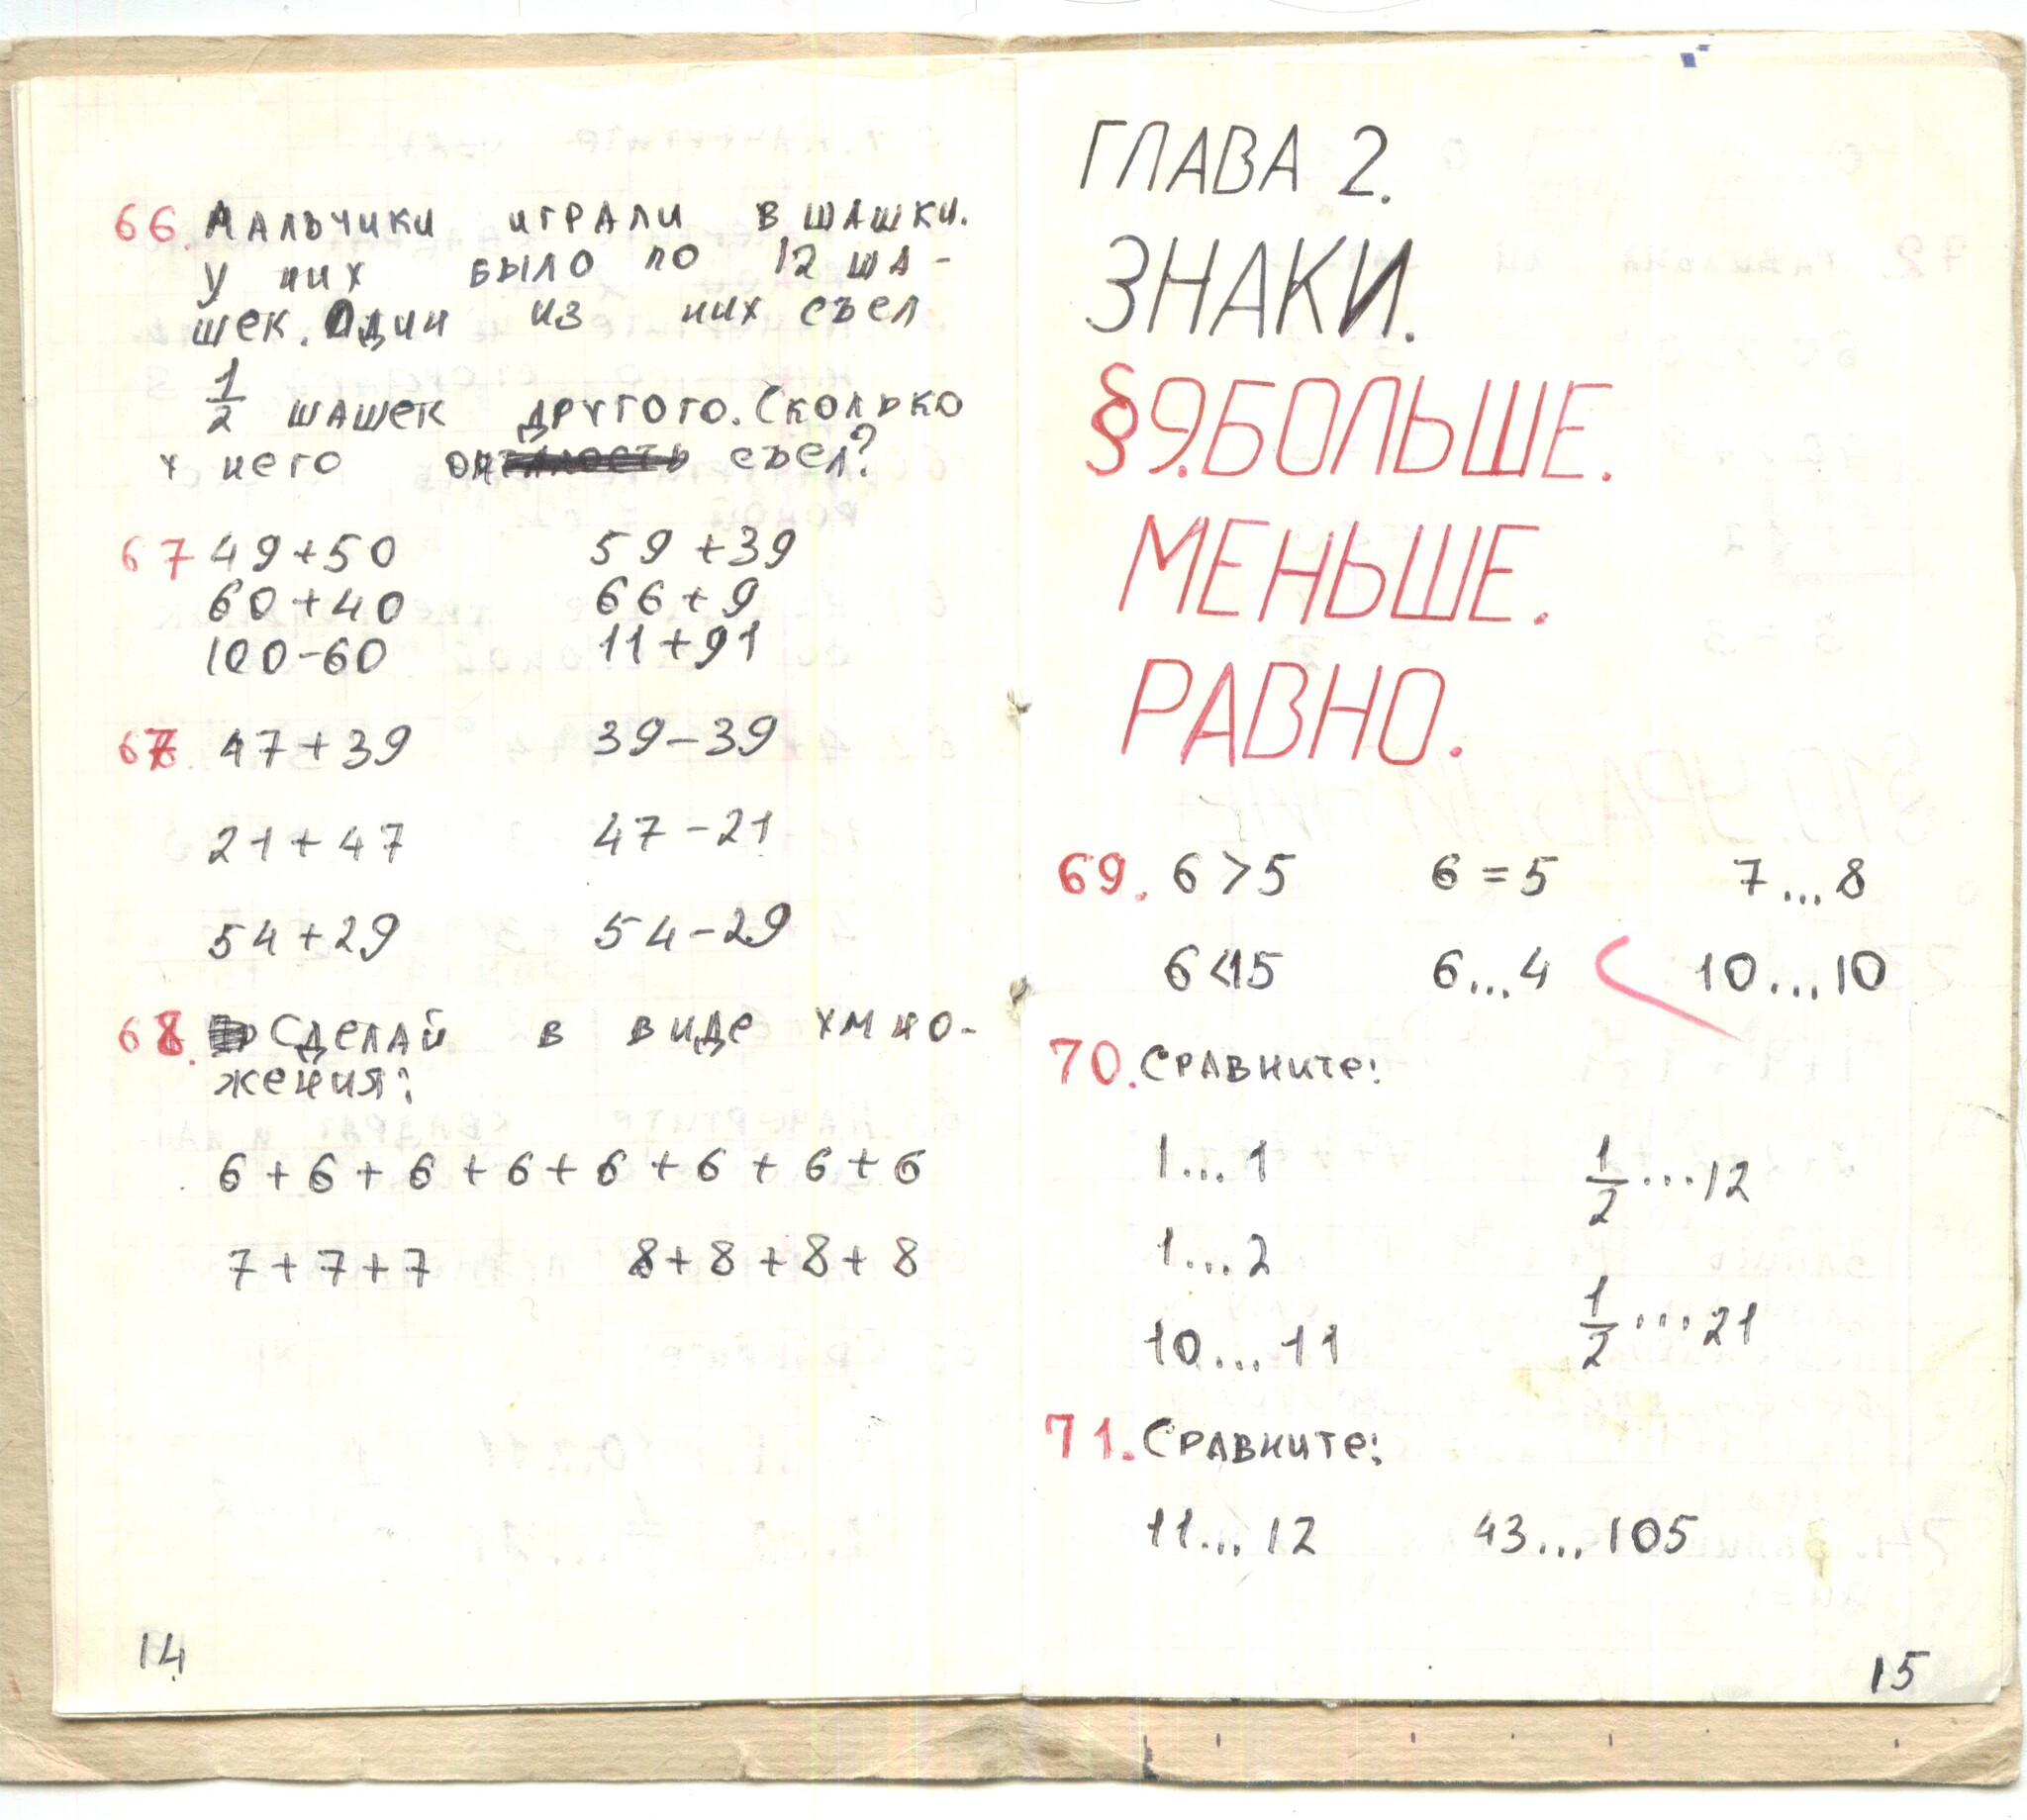 66. Мальчики играли в шашки.
У них было по 12 ша-
шек. Один из них съел
1/2 шашек другого. Сколько
у него он съел?
67 49+50 59+39
60+40 66+9
100-60 11+91
67 47+39 39-39
21+47 47-21
54+29 54-29
68. Сделай в виде умно-
жения:
6+6+6+6+6+6+6+6
7+7+7 8+8+8+8
14
ГЛАВА 2.
ЗНАКИ.
§9. БОЛЬШЕ.
МЕНЬШЕ.
РАВНО.
69. 6>5 6=5 7...8
6<15 6...4 10...10
70. Сравните:
1...1 1/2...12
1...2
10...11 1/2...21
71. Сравните:
11...12 43...105
15